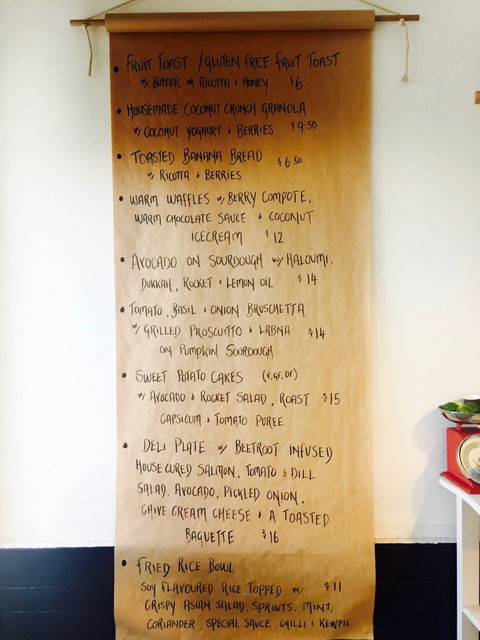 • FRUIT TOAST / GLUTEN FREE FRUIT TOAST
w/ BUTTER OR RICOTTA + HONEY $6
• HOUSEMADE COCONUT CRUNCH GRANOLA
w/ COCONUT YOGHURT + BERRIES $9 50
• TOASTED BANANA BREAD $6 50
w/ RICOTTA + BERRIES
• WARM WAFFLES w/ BERRY COMPOTE,
WARM CHOCOLATE SAUCE + COCONUT
ICECREAM $12
• AVOCADO ON SOURDOUGH w/ HALOUMI,
DUKKAH, ROCKET + LEMON OIL $14
• TOMATO, BASIL + ONION BRUSCHETTA
w/ GRILLED PROSCUITTO + LABNA $14
ON PUMPKIN SOURDOUGH
• SWEET POTATO CAKES (V, GF, DF)
w/ AVOCADO + ROCKET SALAD, ROAST $15
CAPSICUM + TOMATO PUREE
• DELI PLATE w/ BEETROOT INFUSED
HOUSE CURED SALMON, TOMATO + DILL
SALAD, AVOCADO, PICKLED ONION,
CHIVE CREAM CHEESE + A TOASTED
BAGUETTE $16
• FRIED RICE BOWL
SOY FLAVOURED RICE TOPPED w/ $11
CRISPY ASIAN SALAD, SPROUTS, MINT,
CORIANDER, SPECIAL SAUCE, CHILLI + KEWPIE